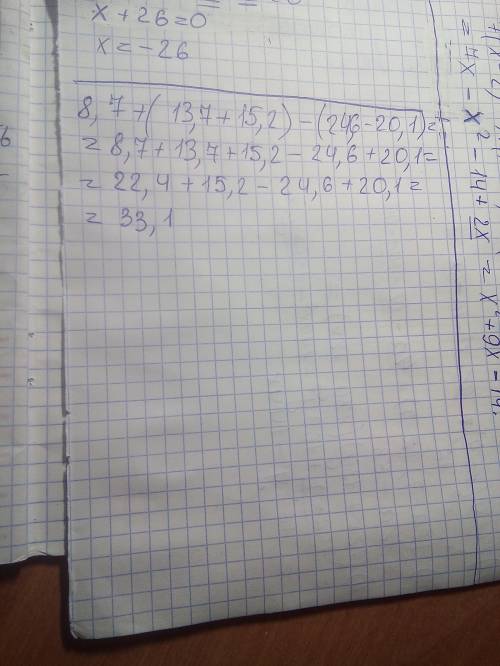 x + 26 = 0
x = - 26
8,7 + ( 13,7 + 15,2 ) - (24,6 - 20,1) =
= 8,7 + 13,7 + 15,2 - 24,6 + 20,1 =
= 22,4 + 15,2 - 24,6 + 20,1 =
= 33,1
= 7x - x² - 14 + 2x = x² + 9x - 14.